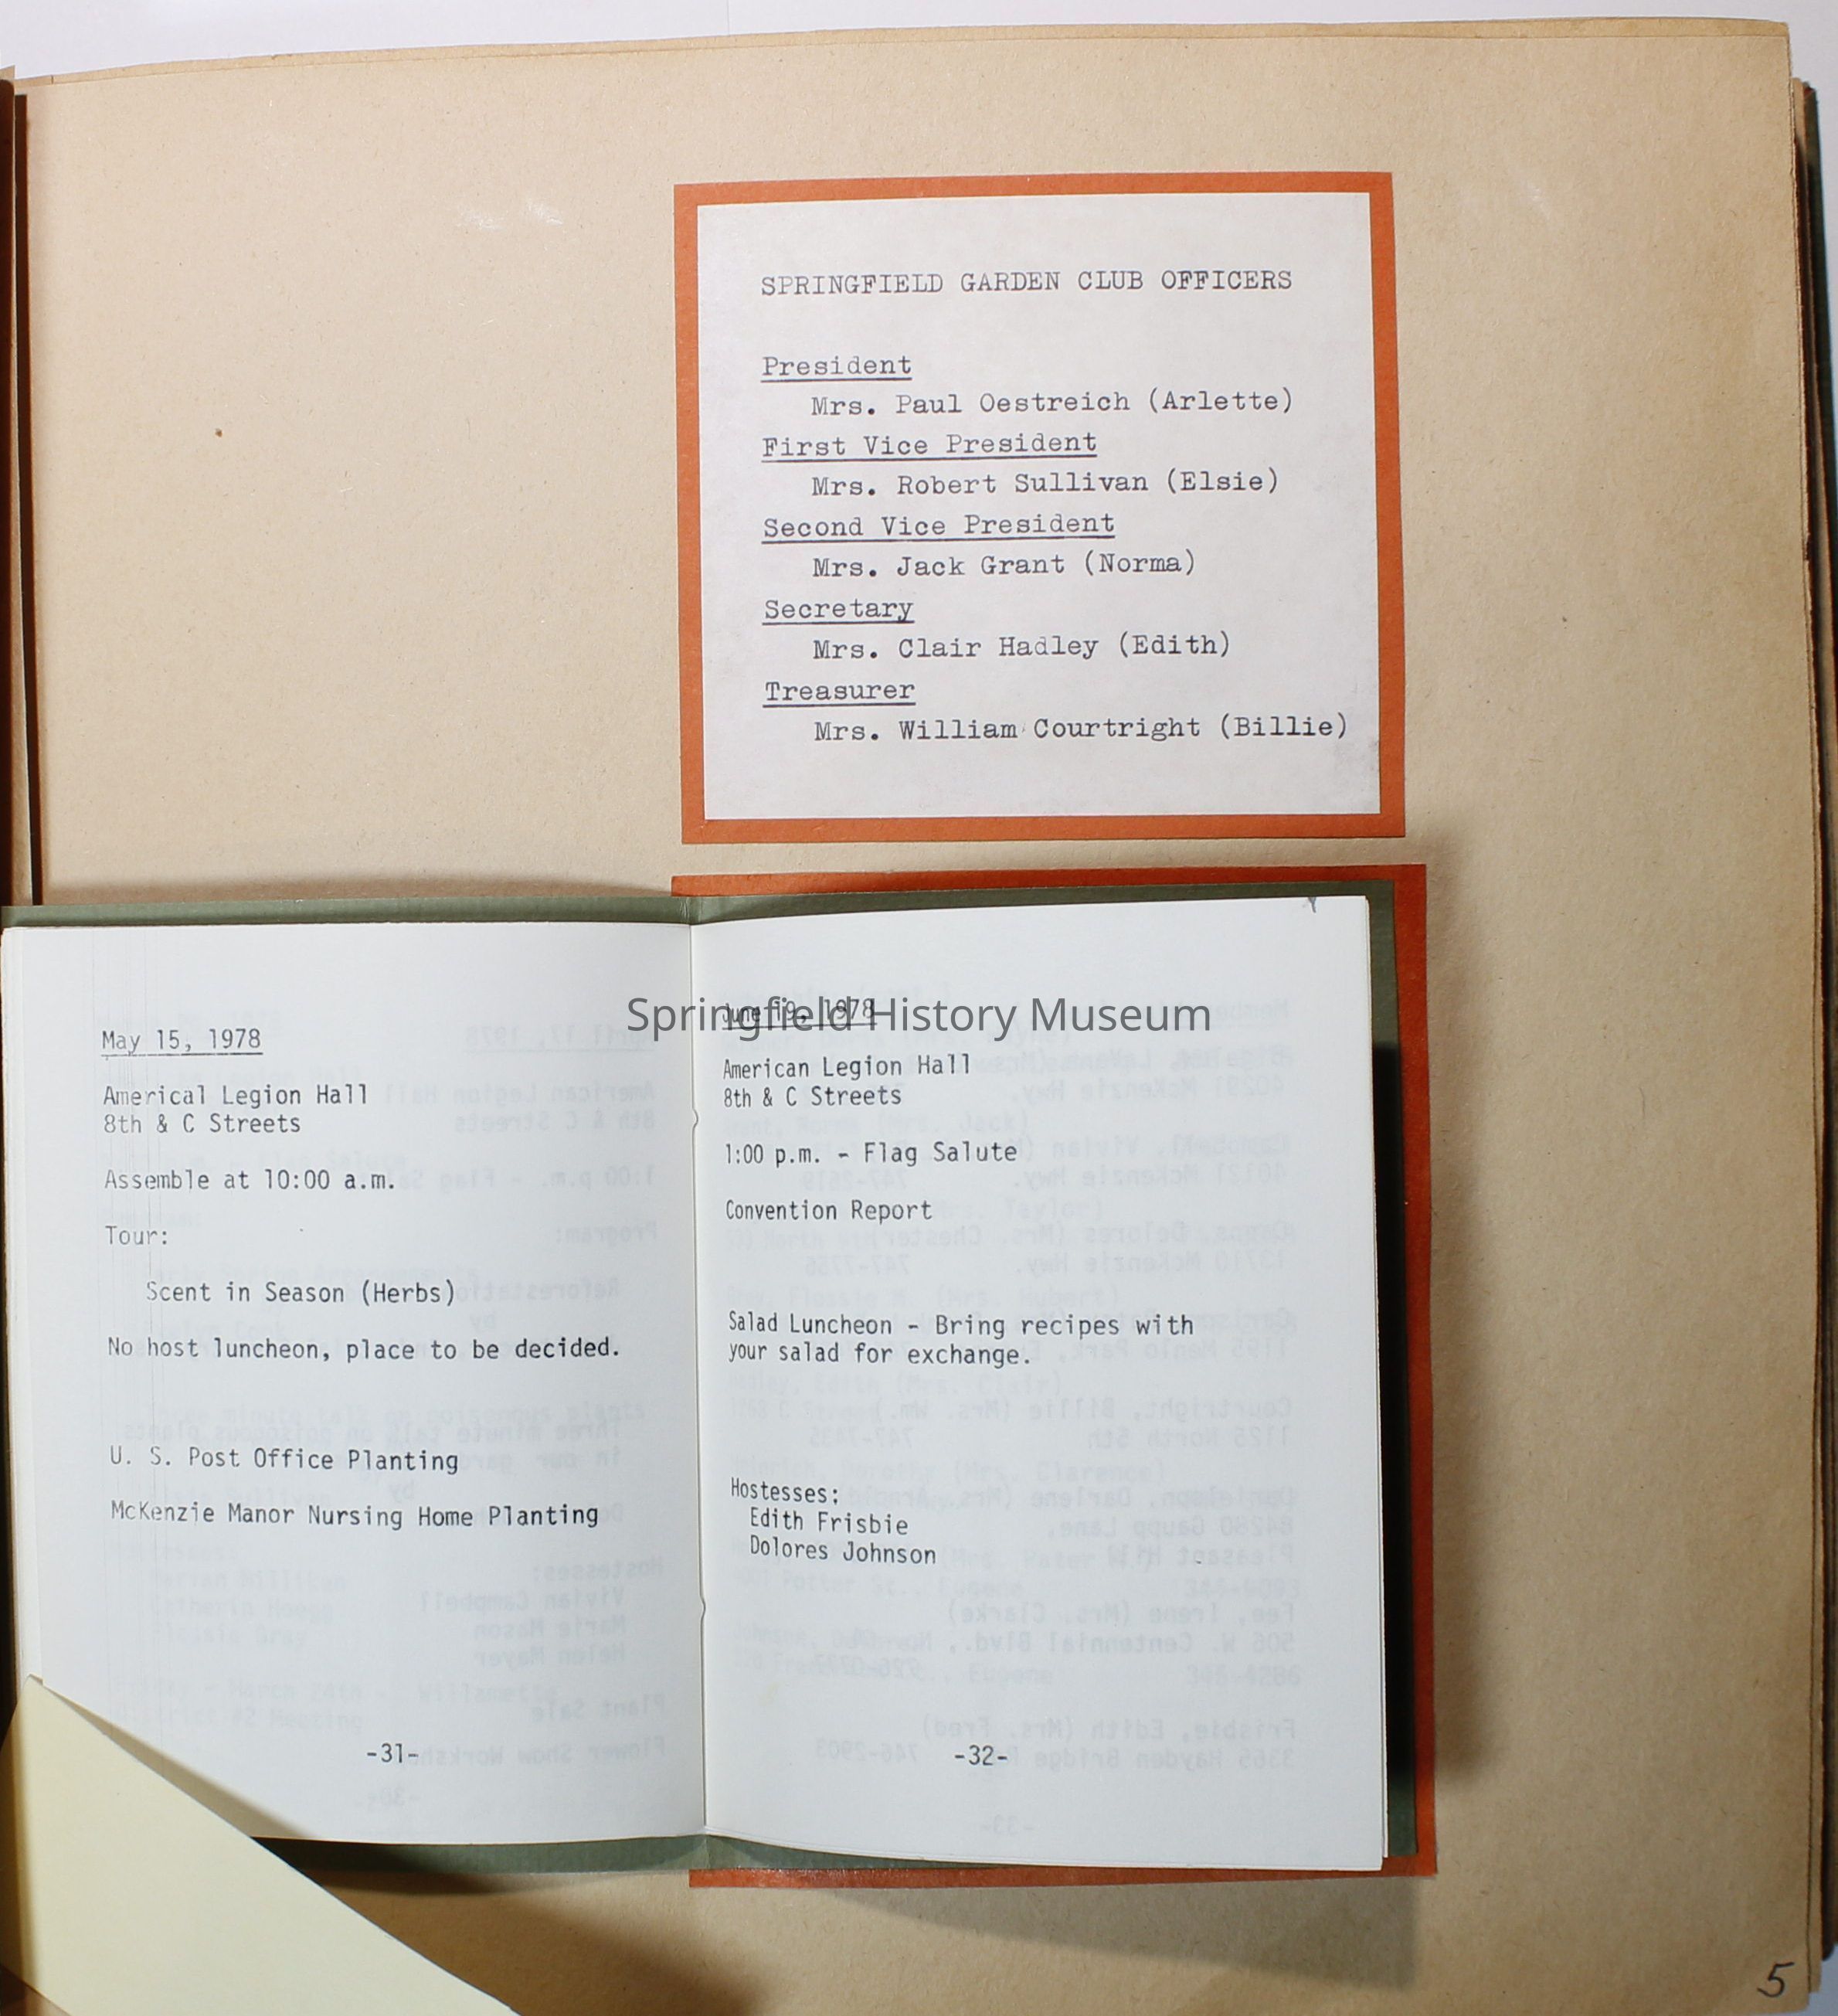 SPRINGFIELD GARDEN CLUB OFFICERS
President
Mrs. Paul Oestreich (Arlette)
First Vice President
Mrs. Robert Sullivan (Elsie)
Second Vice President
Mrs. Jack Grant (Norma)
Secretary
Mrs. Clair Hadley (Edith)
Treasurer
Mrs. William Courtright (Billie)
Springfield History Museum
May 15, 1978
Americal Legion Hall
8th & C Streets
Assemble at 10:00 a.m.
Tour:
Scent in Season (Herbs)
No host luncheon, place to be decided.
U. S. Post Office Planting
McKenzie Manor Nursing Home Planting
-31-
June 19, 1978
American Legion Hall
8th & C Streets
1:00 p.m. - Flag Salute
Convention Report
Salad Luncheon - Bring recipes with
your salad for exchange.
Hostesses:
Edith Frisbie
Dolores Johnson
-32-
5